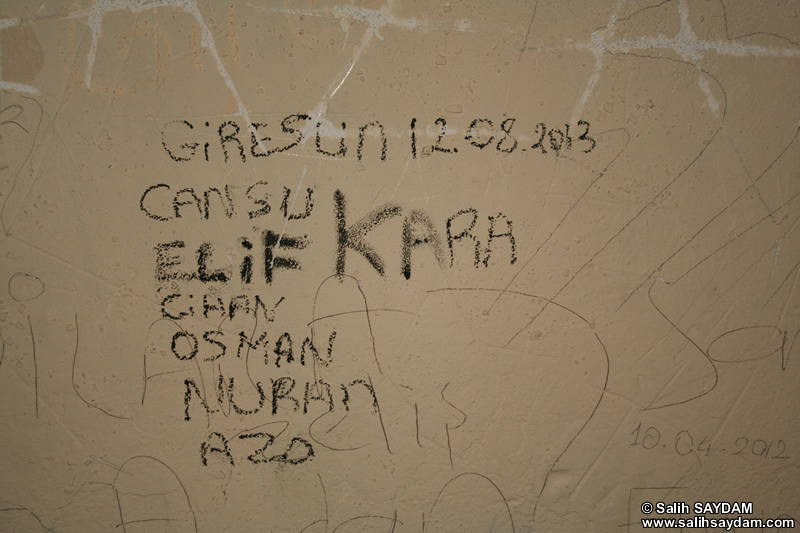 GiRESUN 12.08.2013
CANSU
ELiF KARA
CiHAN
OSMAN
NURAN
AZO
10.04-2012
© Salih SAYDAM
www.salihsaydam.com